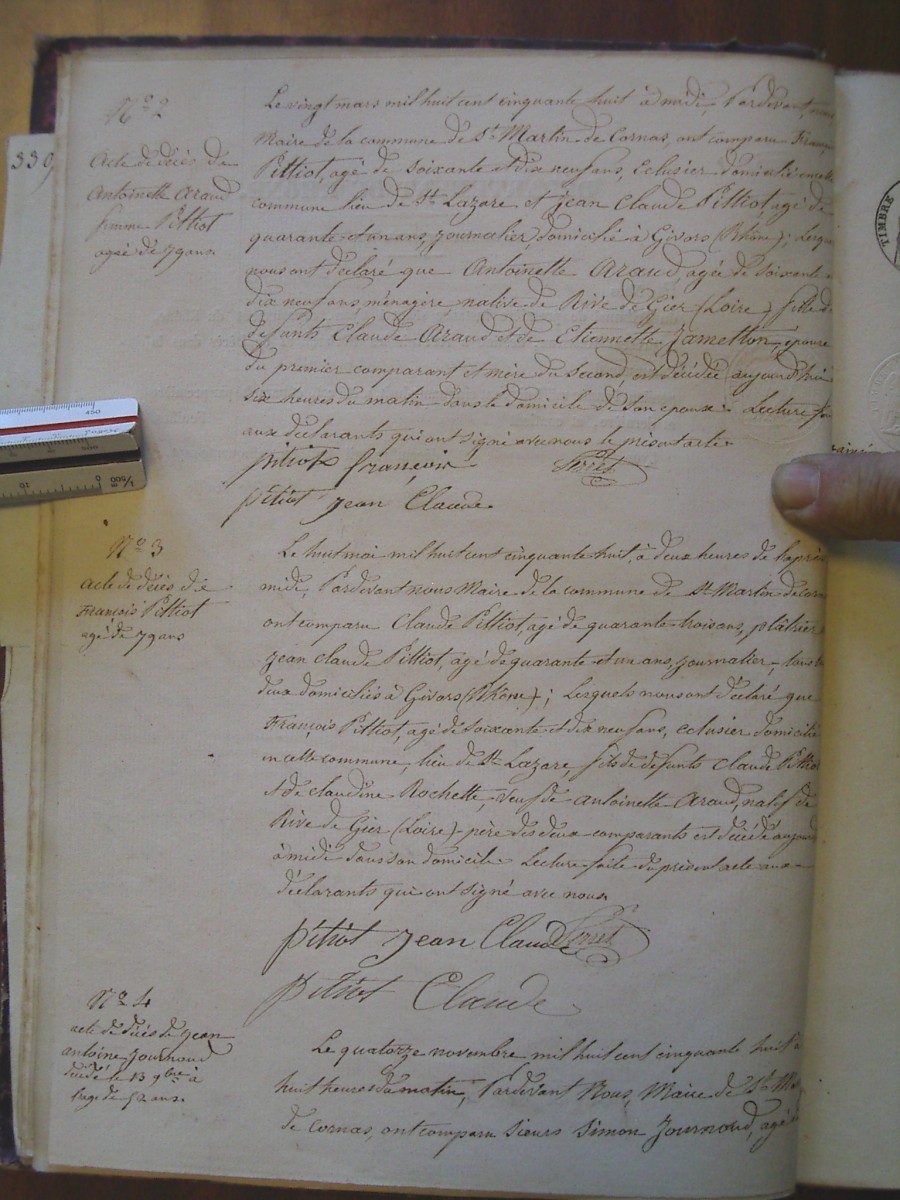 N° 2
Acte de décès de
Antoinette Araud
femme Pitiot
agée de 79 ans.
Le vingt mars mil huit cent cinquante huit à midi, Pardevant nous
Maire de la commune de St Martin de Cornas, ont comparu François
Pitiot, agé de soixante et dix neuf ans, Eclusier domicilié en cette
commune lieu de St Lazare et Jean Claude Pitiot agé de
quarante et un ans, journalier, domicilié à Givors (Rhône); Lesquels
nous ont déclaré que Antoinette Araud, agée de soixante
dix neuf ans, ménagère, native de Rive de Gier (Loire) fille de
défunts Claude Araud et de Etiennette Jametton, épouse
du premier comparant et mère du second, est décédée aujourd'hui
six heures du matin dans le domicile de son époux. Lecture
aux déclarants qui ont signé avec nous le présent acte
pitiot françois
Pitiot Jean Claude
339
TIMBRE
N° 3
acte de décès de
François Pitiot
agé de 79 ans
Le huit mai mil huit cent cinquante huit, à deux heures de l'après
midi, Pardevant nous Maire de la commune de St Martin de
ont comparu Claude Pitiot, agé de quarante-trois ans, plâtrier
Jean Claude Pitiot, agé de quarante et un ans, journalier, tous
deux domiciliés à Givors (Rhône); Lesquels nous ont déclaré que
François Pitiot, agé de soixante et dix neuf ans, eclusier domicilié
en cette commune, lieu de St Lazare, fils de defunts Claude Pitiot
et de Claudine Rochette, veuf de Antoinette Araud, natif de
Rive de Gier (Loire) père des deux comparants est décédé
à midi dans son domicile. Lecture faite du présent acte aux
déclarants qui ont signé avec nous.
pitiot Jean Claude
Pitiot Claude
N° 4
acte de décès de Jean
antoine Journoud
décédé le 13 9bre à
l'age de 52 ans.
Le quatorze novembre mil huit cent cinquante huit à
huit heures du matin, Pardevant Nous Maire de St
de Cornas, ont comparu Sieurs Simon Journoud, agé